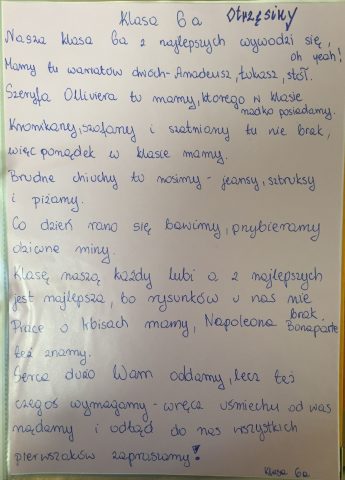 Klasa 6a Otrzęsiny
Nasza klasa 6a z najlepszych wywodzi się,
oh yeah!
Mamy tu wariatów dwóch - Amadeusz, Łukasz, stół.
Szeryfa Olliviera tu mamy, którego w klasie
rzadko posiadamy.
Kromkany, szafany i szatniany tu nie brak,
więc porządek w klasie mamy.
Brudne ciuchy tu nosimy - jeansy, sztruksy
i piżamy.
Co dzień rano się bawimy, przybieramy
dziwne miny.
Klasę naszą każdy lubi a z najlepszych
jest najlepsza, bo rysunków u nas nie
brak.
Prace o kbisach mamy, Napoleona Bonaparte
też znamy.
Serca dużo Wam oddamy, lecz też
czegoś wymagamy - wręcz uśmiechu od was
żądamy i odtąd do nas wszystkich
pierwszaków zapraszamy!
Klasa 6a